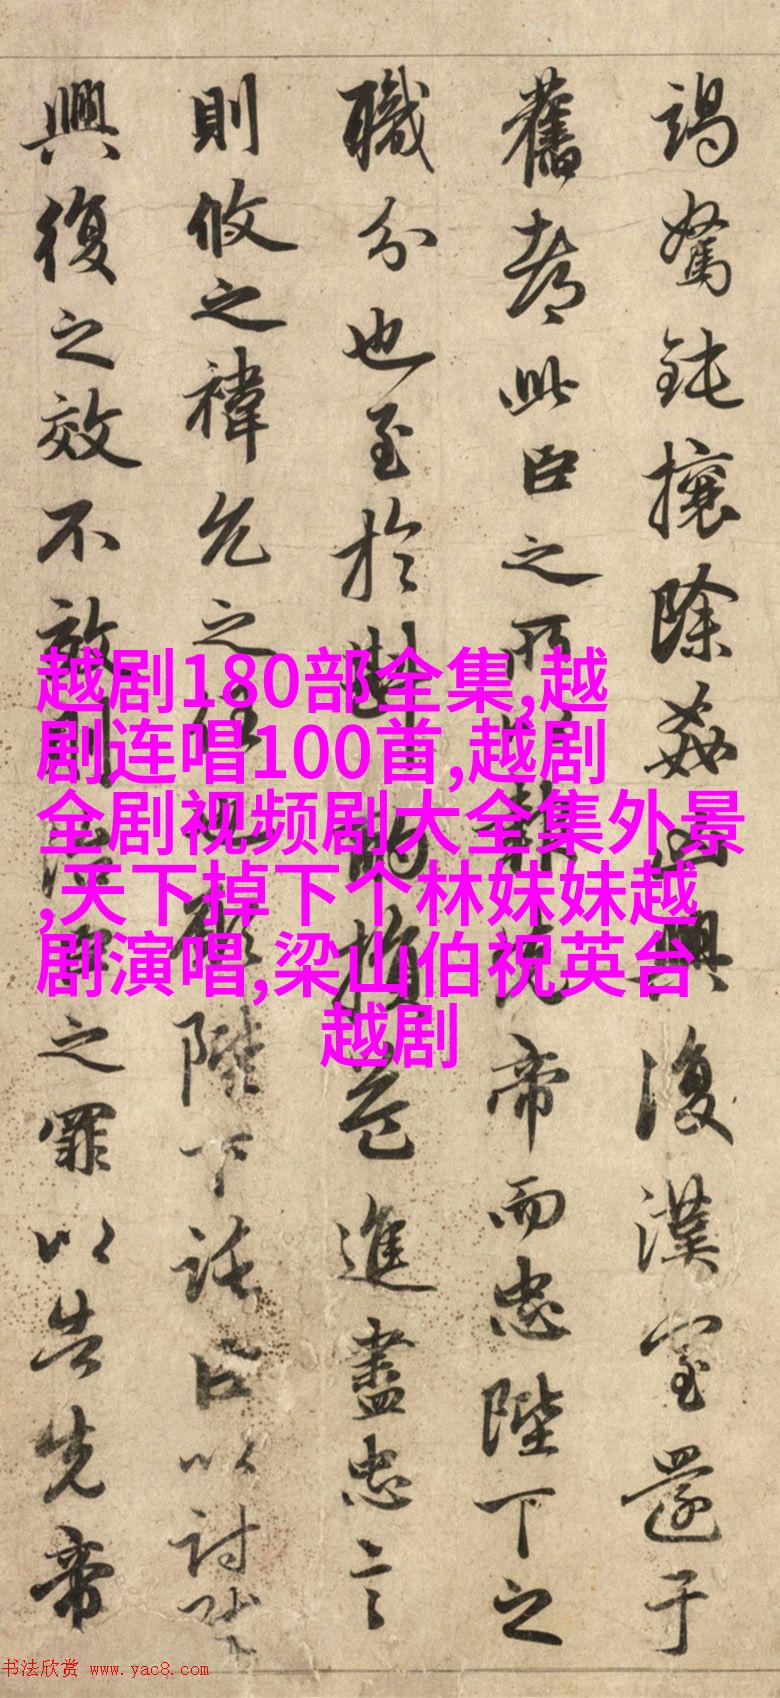 竭駑鈍攘除姦凶興復漢室還于
舊都此臣之所以報先帝而忠陛下之
職分也至於斟酌損益進盡忠言
則攸之禕允之任也願陛下託臣以討賊
興復之效不效則治臣之罪以告先帝
越剧180部全集,越
剧连唱100首,越剧
全剧视频剧大全集外景
,天下掉下个林妹妹越
剧演唱,梁山伯祝英台
越剧
书法欣赏 www.yac8.com